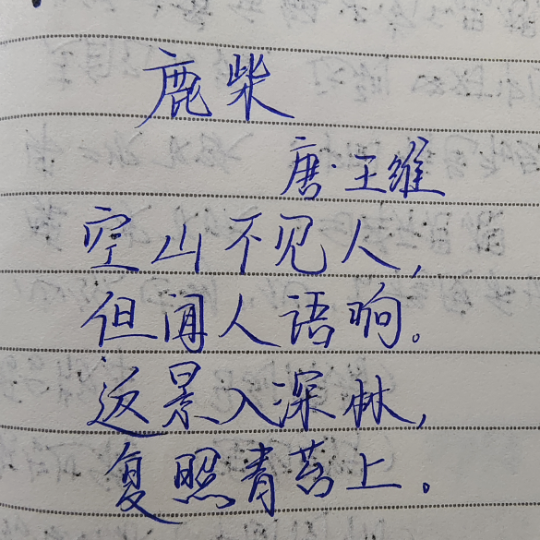 鹿柴
唐·王维
空山不见人,
但闻人语响。
返景入深林,
复照青苔上。